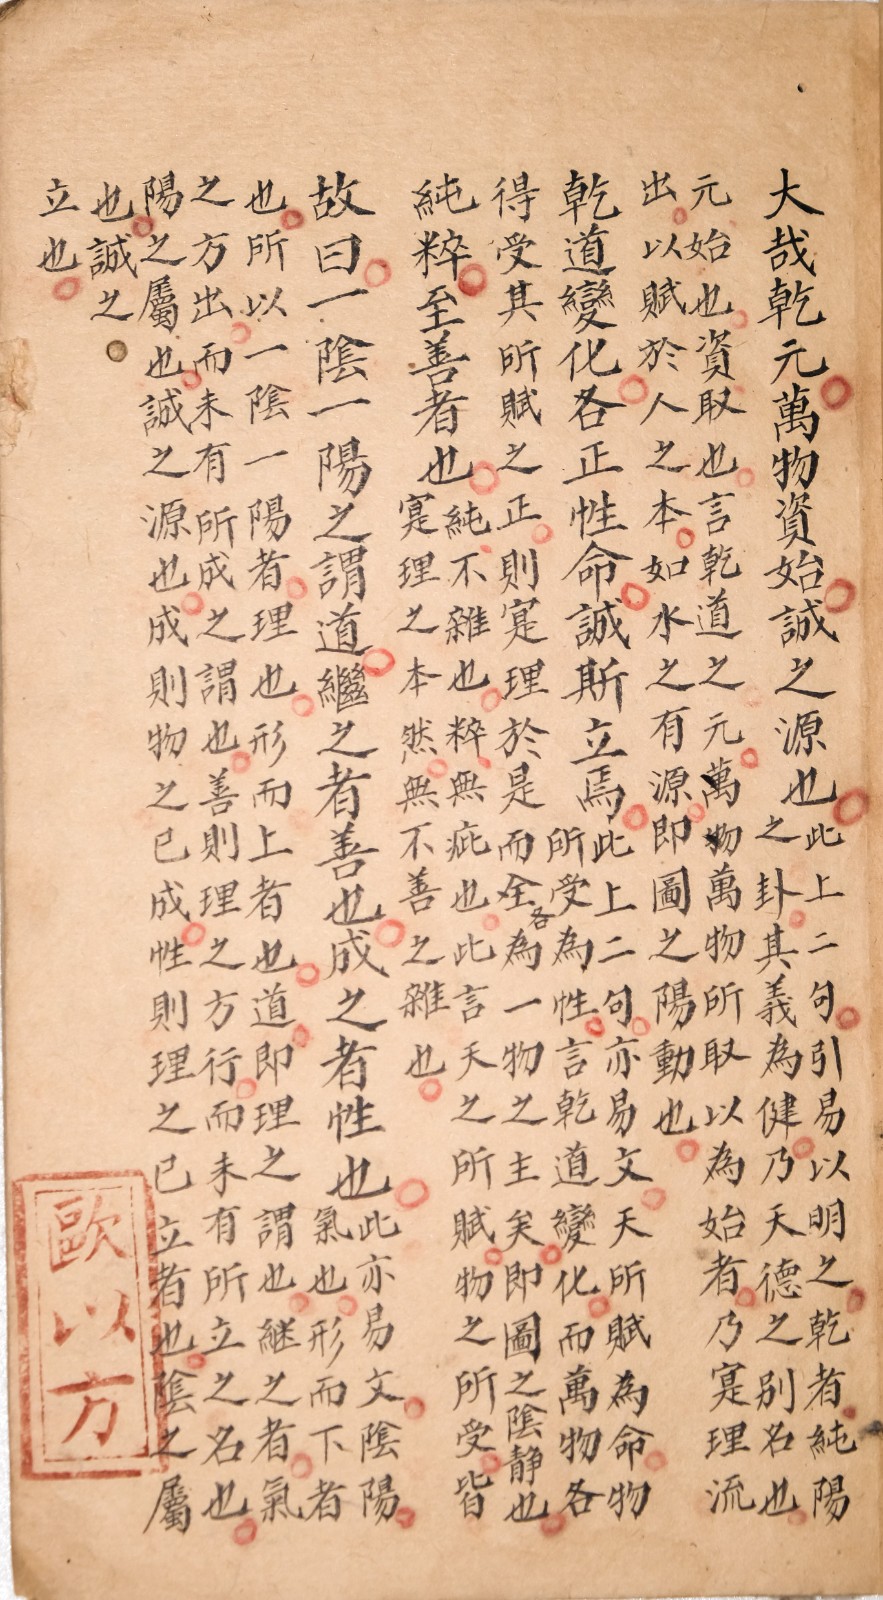 大哉乾元萬物資始誠之源也
此上二句引易以明之乾者純陽
之卦其義為健乃天德之別名也
元始也資取也言乾道之元萬物萬物所取以為始者乃寔理流
出以賦於人之本如水之有源即圖之陽動也
乾道變化各正性命誠斯立焉
此上二句亦易文天所賦為命物
所受為性言乾道變化而萬物各
得受其所賦之正則寔理於是而全各為一物之主矣即圖之陰静也
純粹至善者也
純不雜也粹無疵也此言天之所賦物之所受皆
寔理之本然無不善之雜也
故曰一陰一陽之謂道繼之者善也成之者性也
此亦易文陰陽
氣也形而下者
也所以一陰一陽者理也形而上者也道即理之謂也継之者氣
之方出而未有所成之謂也善則理之方行而未有所立之名也
陽之屬也誠之源也成則物之已成性則理之已立者也陰之屬
也誠之
立也
歐以方